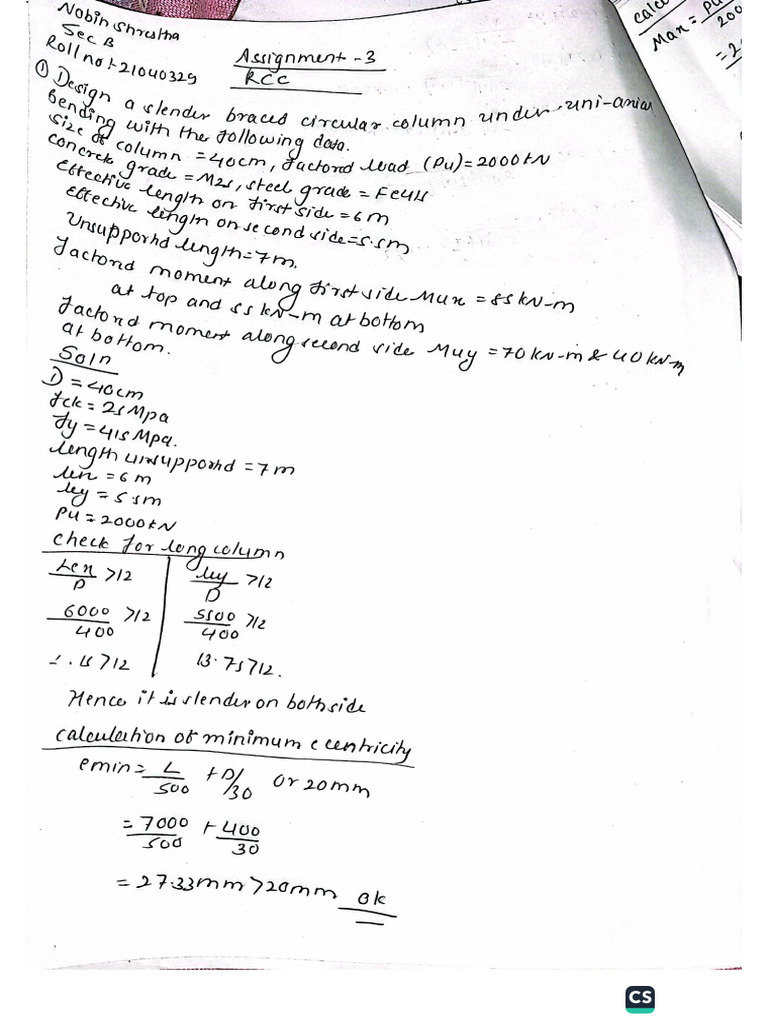 Nobin Shrestha
Sec B
Roll no :- 21040329
Assignment -3
RCC
① Design a slender braced circular column under uni-axial
bending with the following data.
size of column = 40cm, factored load (Pu) = 2000kN
concrete grade = M25, steel grade = Fe415
Effective length on first side = 6m
Effective length on second side = 5.5m
Unsupported length = 7m.
factored moment along first side Mux = 85kN-m
at top and 55 kN-m at bottom
factored moment along second side Muy = 70kN-m & 40kN-m
at bottom.
Soln
D = 40cm
fck = 25Mpa
fy = 415Mpa.
length unsupported = 7m
lex = 6m
ley = 5.5m
Pu = 2000kN
check for long column
Lex/D >12
ley/D >12
6000/400 >12
5500/400 >12
15 >12
13.75 >12.
Hence it is slender on both side
calculation of minimum eccentricity
emin = L/500 + D/30 or 20mm
= 7000/500 + 400/30
= 27.33mm > 20mm ok
calc
Max = Pu
200
= 2
CS